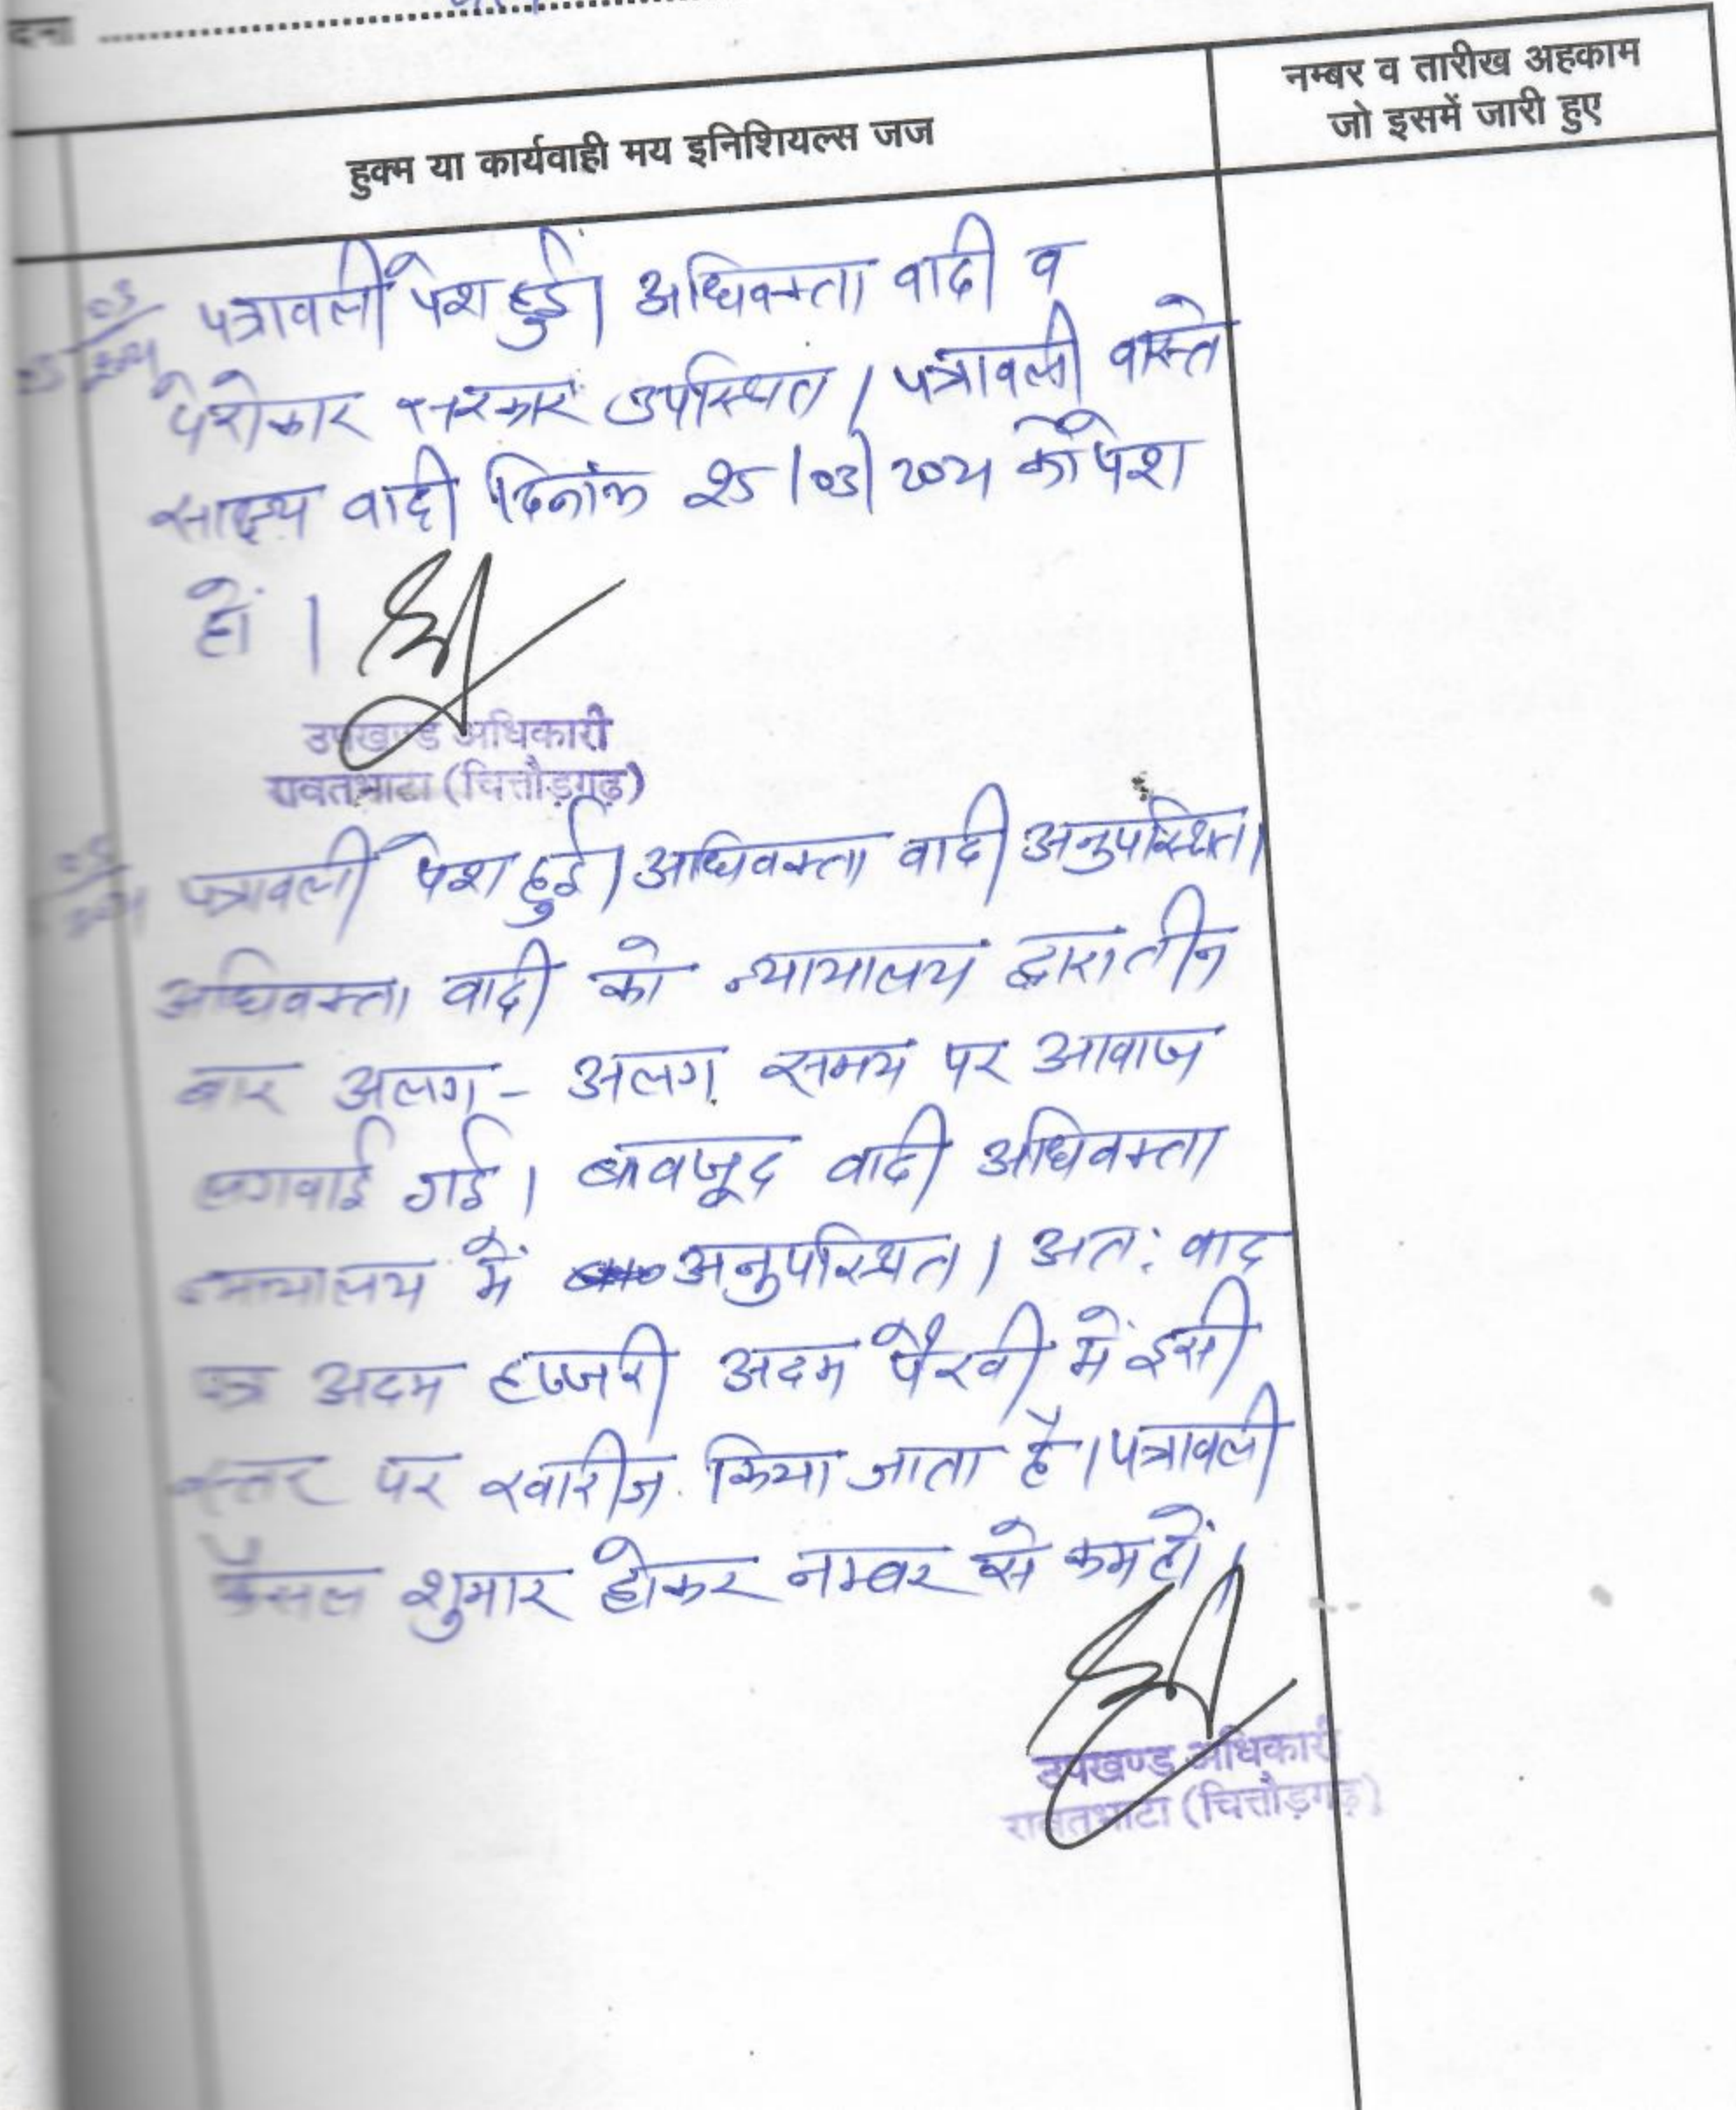 हुक्म या कार्यवाही मय इनिशियल्स जज
नम्बर व तारीख अहकाम
जो इसमें जारी हुए
पत्रावली पेश हुई। अधिवक्ता वादी व
पेरोकार सरकार उपस्थित। पत्रावली वास्ते
साक्ष्य वादी दिनांक 25/03/2024 को पेश
हों।
उपखण्ड अधिकारी
रावतभाटा (चित्तौड़गढ़)
पत्रावली पेश हुई। अधिवक्ता वादी अनुपस्थित।
अधिवक्ता वादी को न्यायालय द्वारा तीन
बार अलग - अलग समय पर आवाज
लगवाई गई। बावजूद वादी अधिवक्ता
न्यायालय में अनुपस्थित। अत: वाद
पत्र अदम हाजरी अदम पैरवी में इसी
स्तर पर खारीज किया जाता है। पत्रावली
फैसल शुमार होकर नम्बर से कम हों।
उपखण्ड अधिकारी
रावतभाटा (चित्तौड़गढ़)